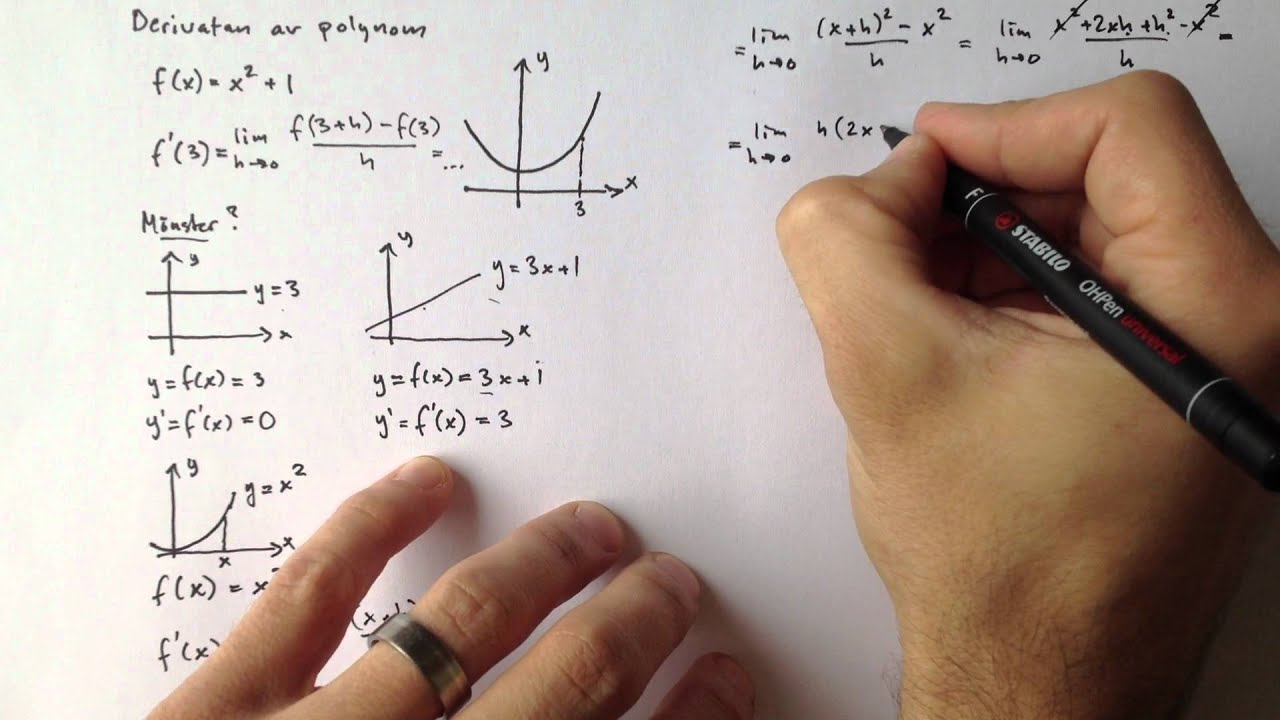 Derivatan av polynom
f(x) = x² + 1
f'(3) = lim h→0 f(3+h) - f(3) / h = ...
y
x
3
Mönster?
y
y = 3
x
y = f(x) = 3
y' = f'(x) = 0
y
y = 3x+1
x
y = f(x) = 3x+1
y' = f'(x) = 3
y
y = x²
x
x
f(x) = x
f'(x)
= lim h→0 (x+h)² - x² / h = lim h→0 x² + 2xh + h² - x² / h =
= lim h→0 h(2x
STABILO
OHPen universal
F